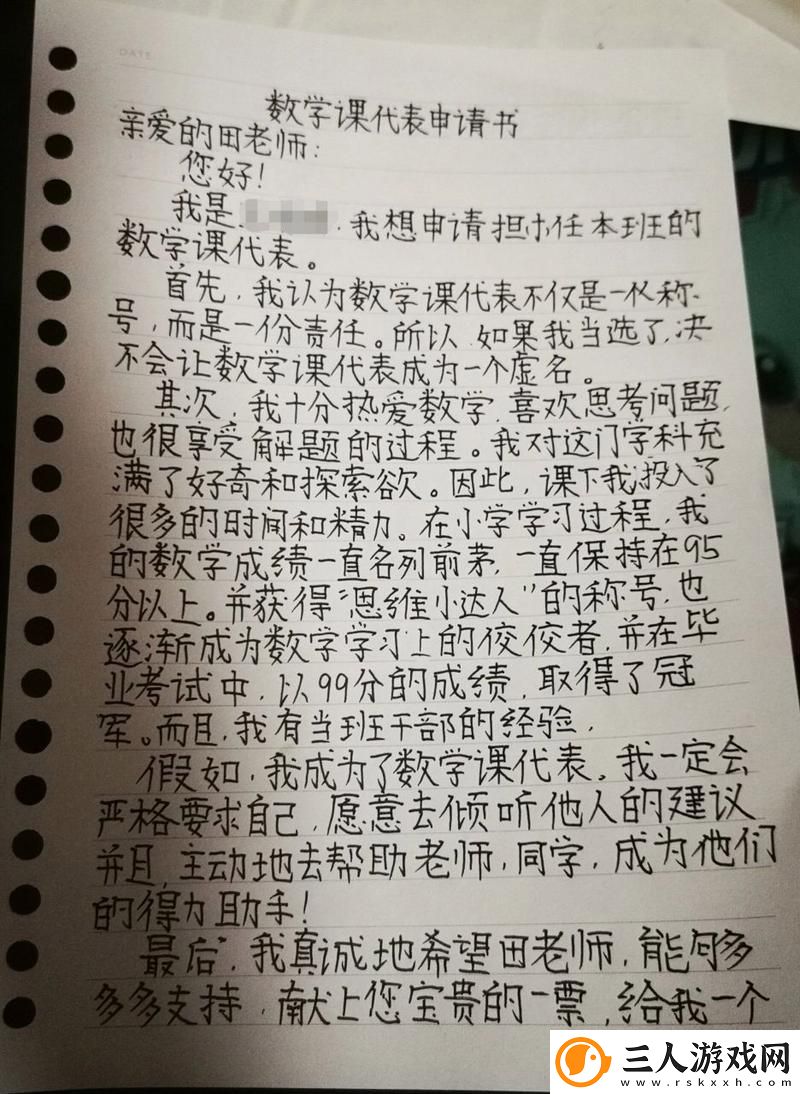 DATE
数学课代表申请书
亲爱的田老师:
您好!
我是 ,我想申请担任本班的
数学课代表。
首先,我认为数学课代表不仅是一个称
号,而是一份责任。所以,如果我当选了,决
不会让数学课代表成为一个虚名。
其次,我十分热爱数学,喜欢思考问题,
也很享受解题的过程。我对这门学科充
满了好奇和探索欲。因此,课下我投入了
很多的时间和精力。在小学学习过程,我
的数学成绩一直名列前茅,一直保持在95
分以上。并获得“思维小达人”的称号,也
逐渐成为数学学习上的佼佼者,并在毕
业考试中,以99分的成绩,取得了冠
军。而且,我有当班干部的经验,
假如,我成为了数学课代表。我一定会
严格要求自己,愿意去倾听他人的建议
并且,主动地去帮助老师,同学,成为他们
的得力助手!
最后,我真诚地希望田老师,能够多
多多支持,献上您宝贵的一票,给我一个
三人游戏网
www.rskxxh.com